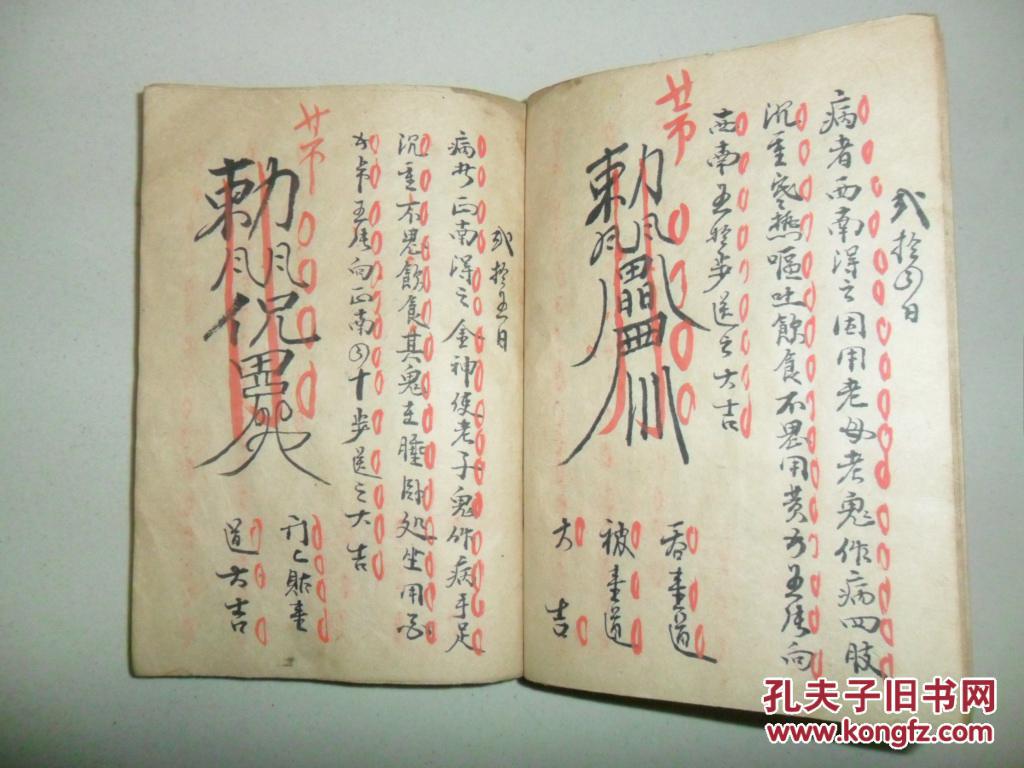 弍拾四日
病者西南得之因用老母老鬼作病四肢
沉重寒热嘔吐飲食不思用黄方五張向
西南五拾步送之大吉
廿
吞
道
被
道
大吉
弍拾五日
病者正南得之金神使老子鬼作病手足
沉重不思飲食其鬼在睡卧処坐用
五張向正南四十步送之大吉
廿
勅
貼
道大吉
孔夫子旧书网
www.kongfz.com